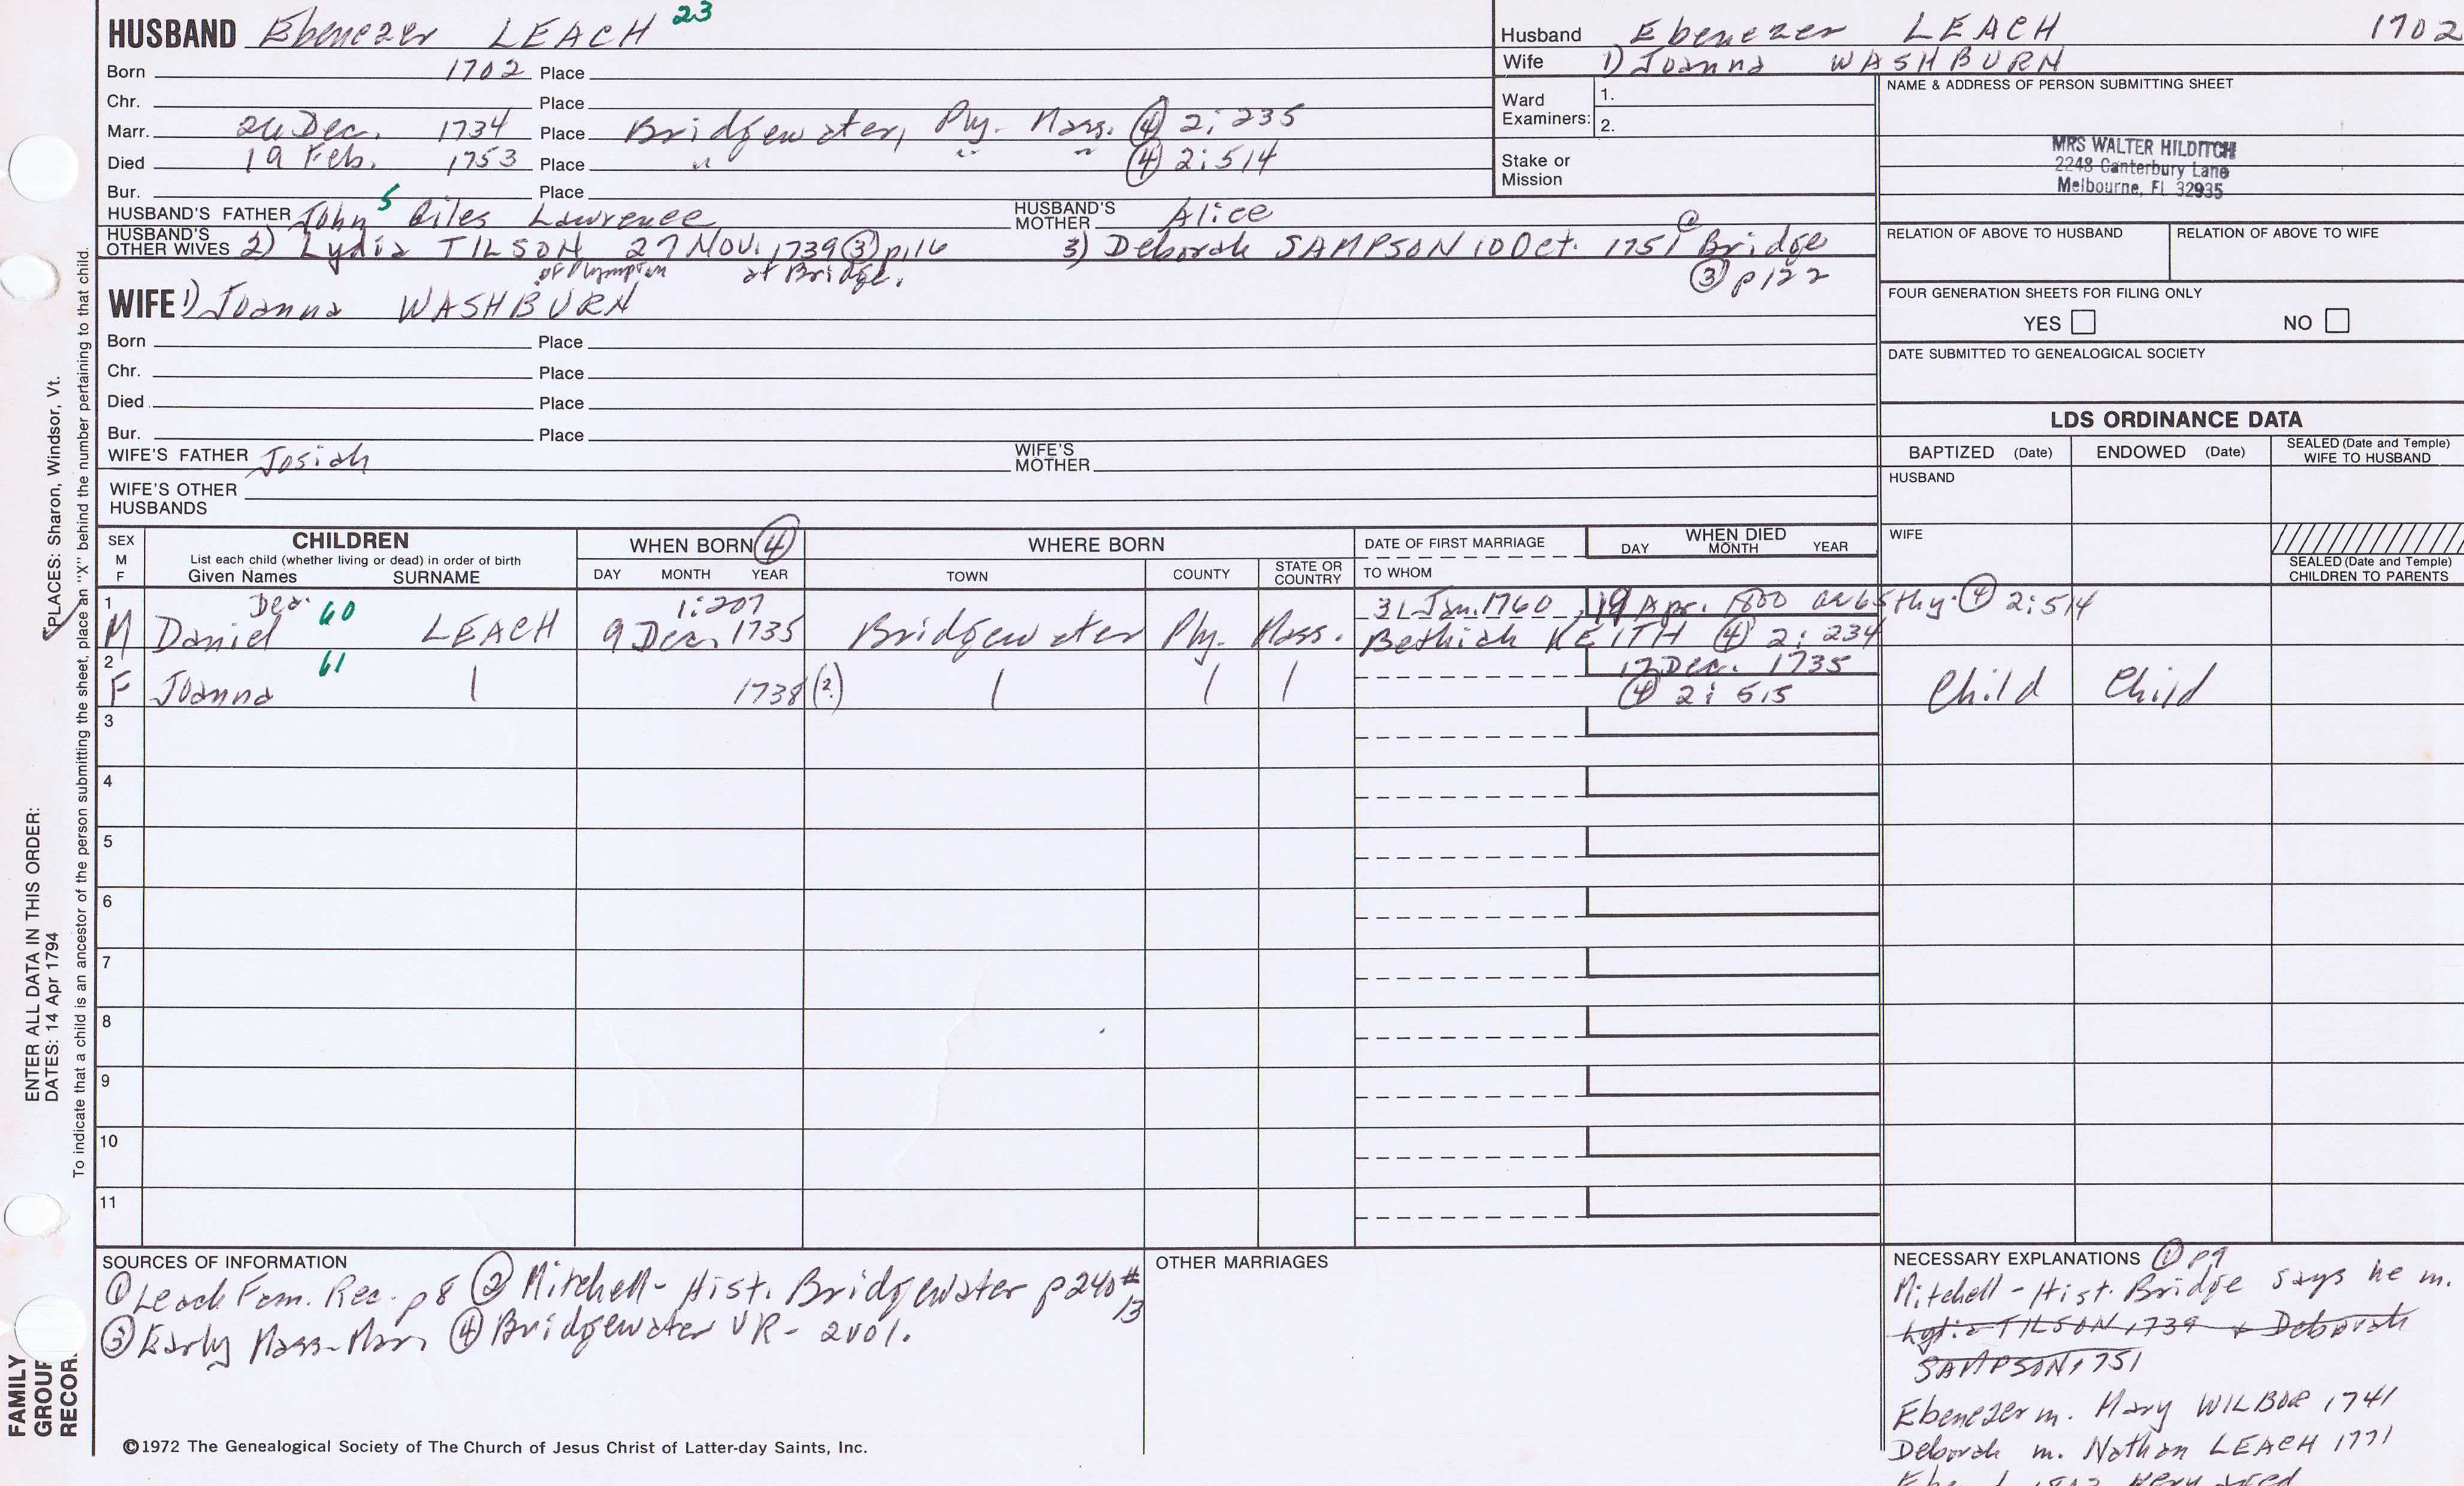 HUSBAND Ebenezer LEACH 23
Born 1702 Place
Chr. Place
Marr. 24 Dec. 1734 Place Bridgewater, Ply. Mass. ④ 2:235
Died 19 Feb. 1753 Place " " " ④ 2:514
Bur. Place
HUSBAND'S FATHER John 5 Giles Lawrence HUSBAND'S MOTHER Alice
HUSBAND'S OTHER WIVES 2) Lydia TILSON 27 Nov. 1739 ③ p116 3) Deborah SAMPSON 10 Oct. 1751 @ Bridge
of Plympton at Bridge. ③ p122
WIFE 1) Joanna WASHBURN
Born Place
Chr. Place
Died Place
Bur. Place
WIFE'S FATHER Josiah WIFE'S MOTHER
WIFE'S OTHER HUSBANDS
Husband Ebenezer LEACH 1702
Wife 1) Joanna WASHBURN
Ward Examiners: 1.
2.
Stake or Mission
NAME & ADDRESS OF PERSON SUBMITTING SHEET
MRS WALTER HILDITCH
2248 Canterbury Lane
Melbourne, FL 32935
RELATION OF ABOVE TO HUSBAND RELATION OF ABOVE TO WIFE
FOUR GENERATION SHEETS FOR FILING ONLY
YES NO
DATE SUBMITTED TO GENEALOGICAL SOCIETY
LDS ORDINANCE DATA
BAPTIZED (Date) ENDOWED (Date) SEALED (Date and Temple) WIFE TO HUSBAND
HUSBAND
WIFE
SEALED (Date and Temple) CHILDREN TO PARENTS
SEX M F
CHILDREN
List each child (whether living or dead) in order of birth
Given Names SURNAME
WHEN BORN ④
DAY MONTH YEAR
WHERE BORN
TOWN COUNTY STATE OR COUNTRY
DATE OF FIRST MARRIAGE
TO WHOM
WHEN DIED
DAY MONTH YEAR
1 Dea. 60 1:207 31 Jan. 1760 19 Apr. 1800 ae 65thy. ④ 2:514
M Daniel LEACH 9 Dec. 1735 Bridgewater Ply. Mass. Bethiah KEITH ④ 2:234
2 61 12 Dec. 1735
F Joanna | 1738 (?) | | | ④ 2:515 Child Child
3
4
5
6
7
8
9
10
11
SOURCES OF INFORMATION
① Leach Fam. Rec. p8 ② Mitchell - Hist. Bridgewater p240 #13
③ Early Mass-Marr ④ Bridgewater VR - 2 vol.
OTHER MARRIAGES
NECESSARY EXPLANATIONS ① p9
Mitchell - Hist. Bridge says he m.
Lydia TILSON 1739 + Deborah
SAMPSON 1751
Ebenezer m. Mary WILBOR 1741
Deborah m. Nathan LEACH 1771
©1972 The Genealogical Society of The Church of Jesus Christ of Latter-day Saints, Inc.
FAMILY GROUP RECOR
ENTER ALL DATA IN THIS ORDER:
DATES: 14 Apr 1794
PLACES: Sharon, Windsor, Vt.
To indicate that a child is an ancestor of the person submitting the sheet, place an "X" behind the number pertaining to that child.